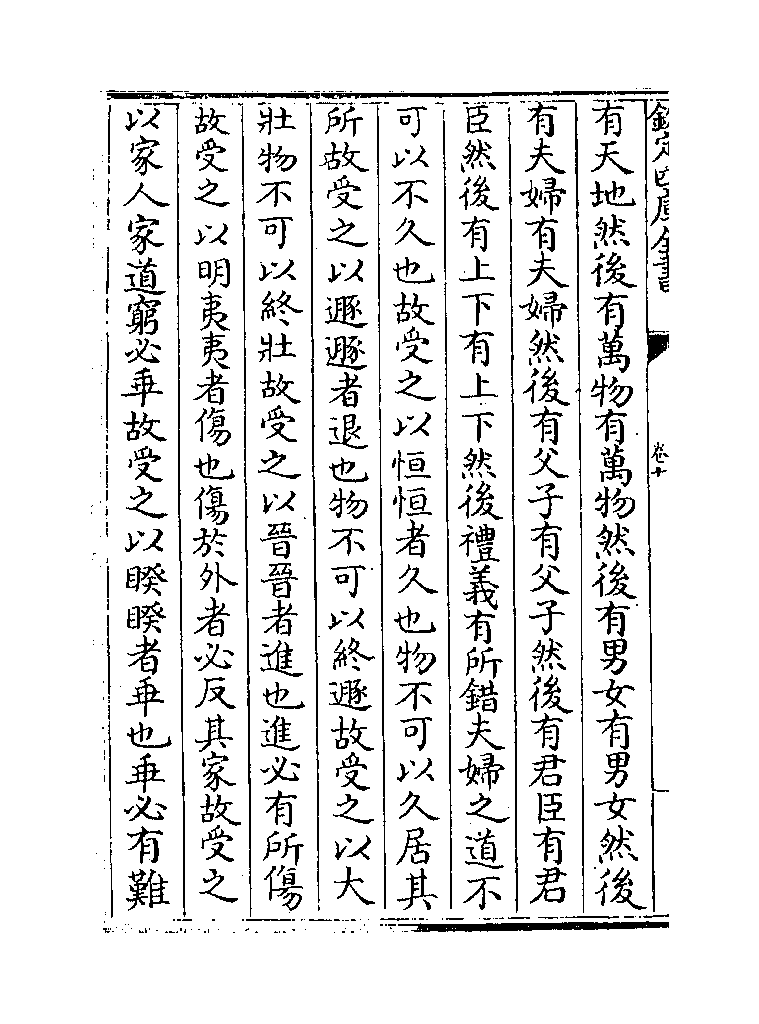 欽定四庫全書
卷十
有天地然後有萬物有萬物然後有男女有男女然後
有夫婦有夫婦然後有父子有父子然後有君臣有君
臣然後有上下有上下然後禮義有所錯夫婦之道不
可以不久也故受之以恒恒者久也物不可以久居其
所故受之以遯遯者退也物不可以終遯故受之以大
壯物不可以終壯故受之以晉晉者進也進必有所傷
故受之以明夷夷者傷也傷於外者必反其家故受之
以家人家道窮必乖故受之以睽睽者乖也乖必有難